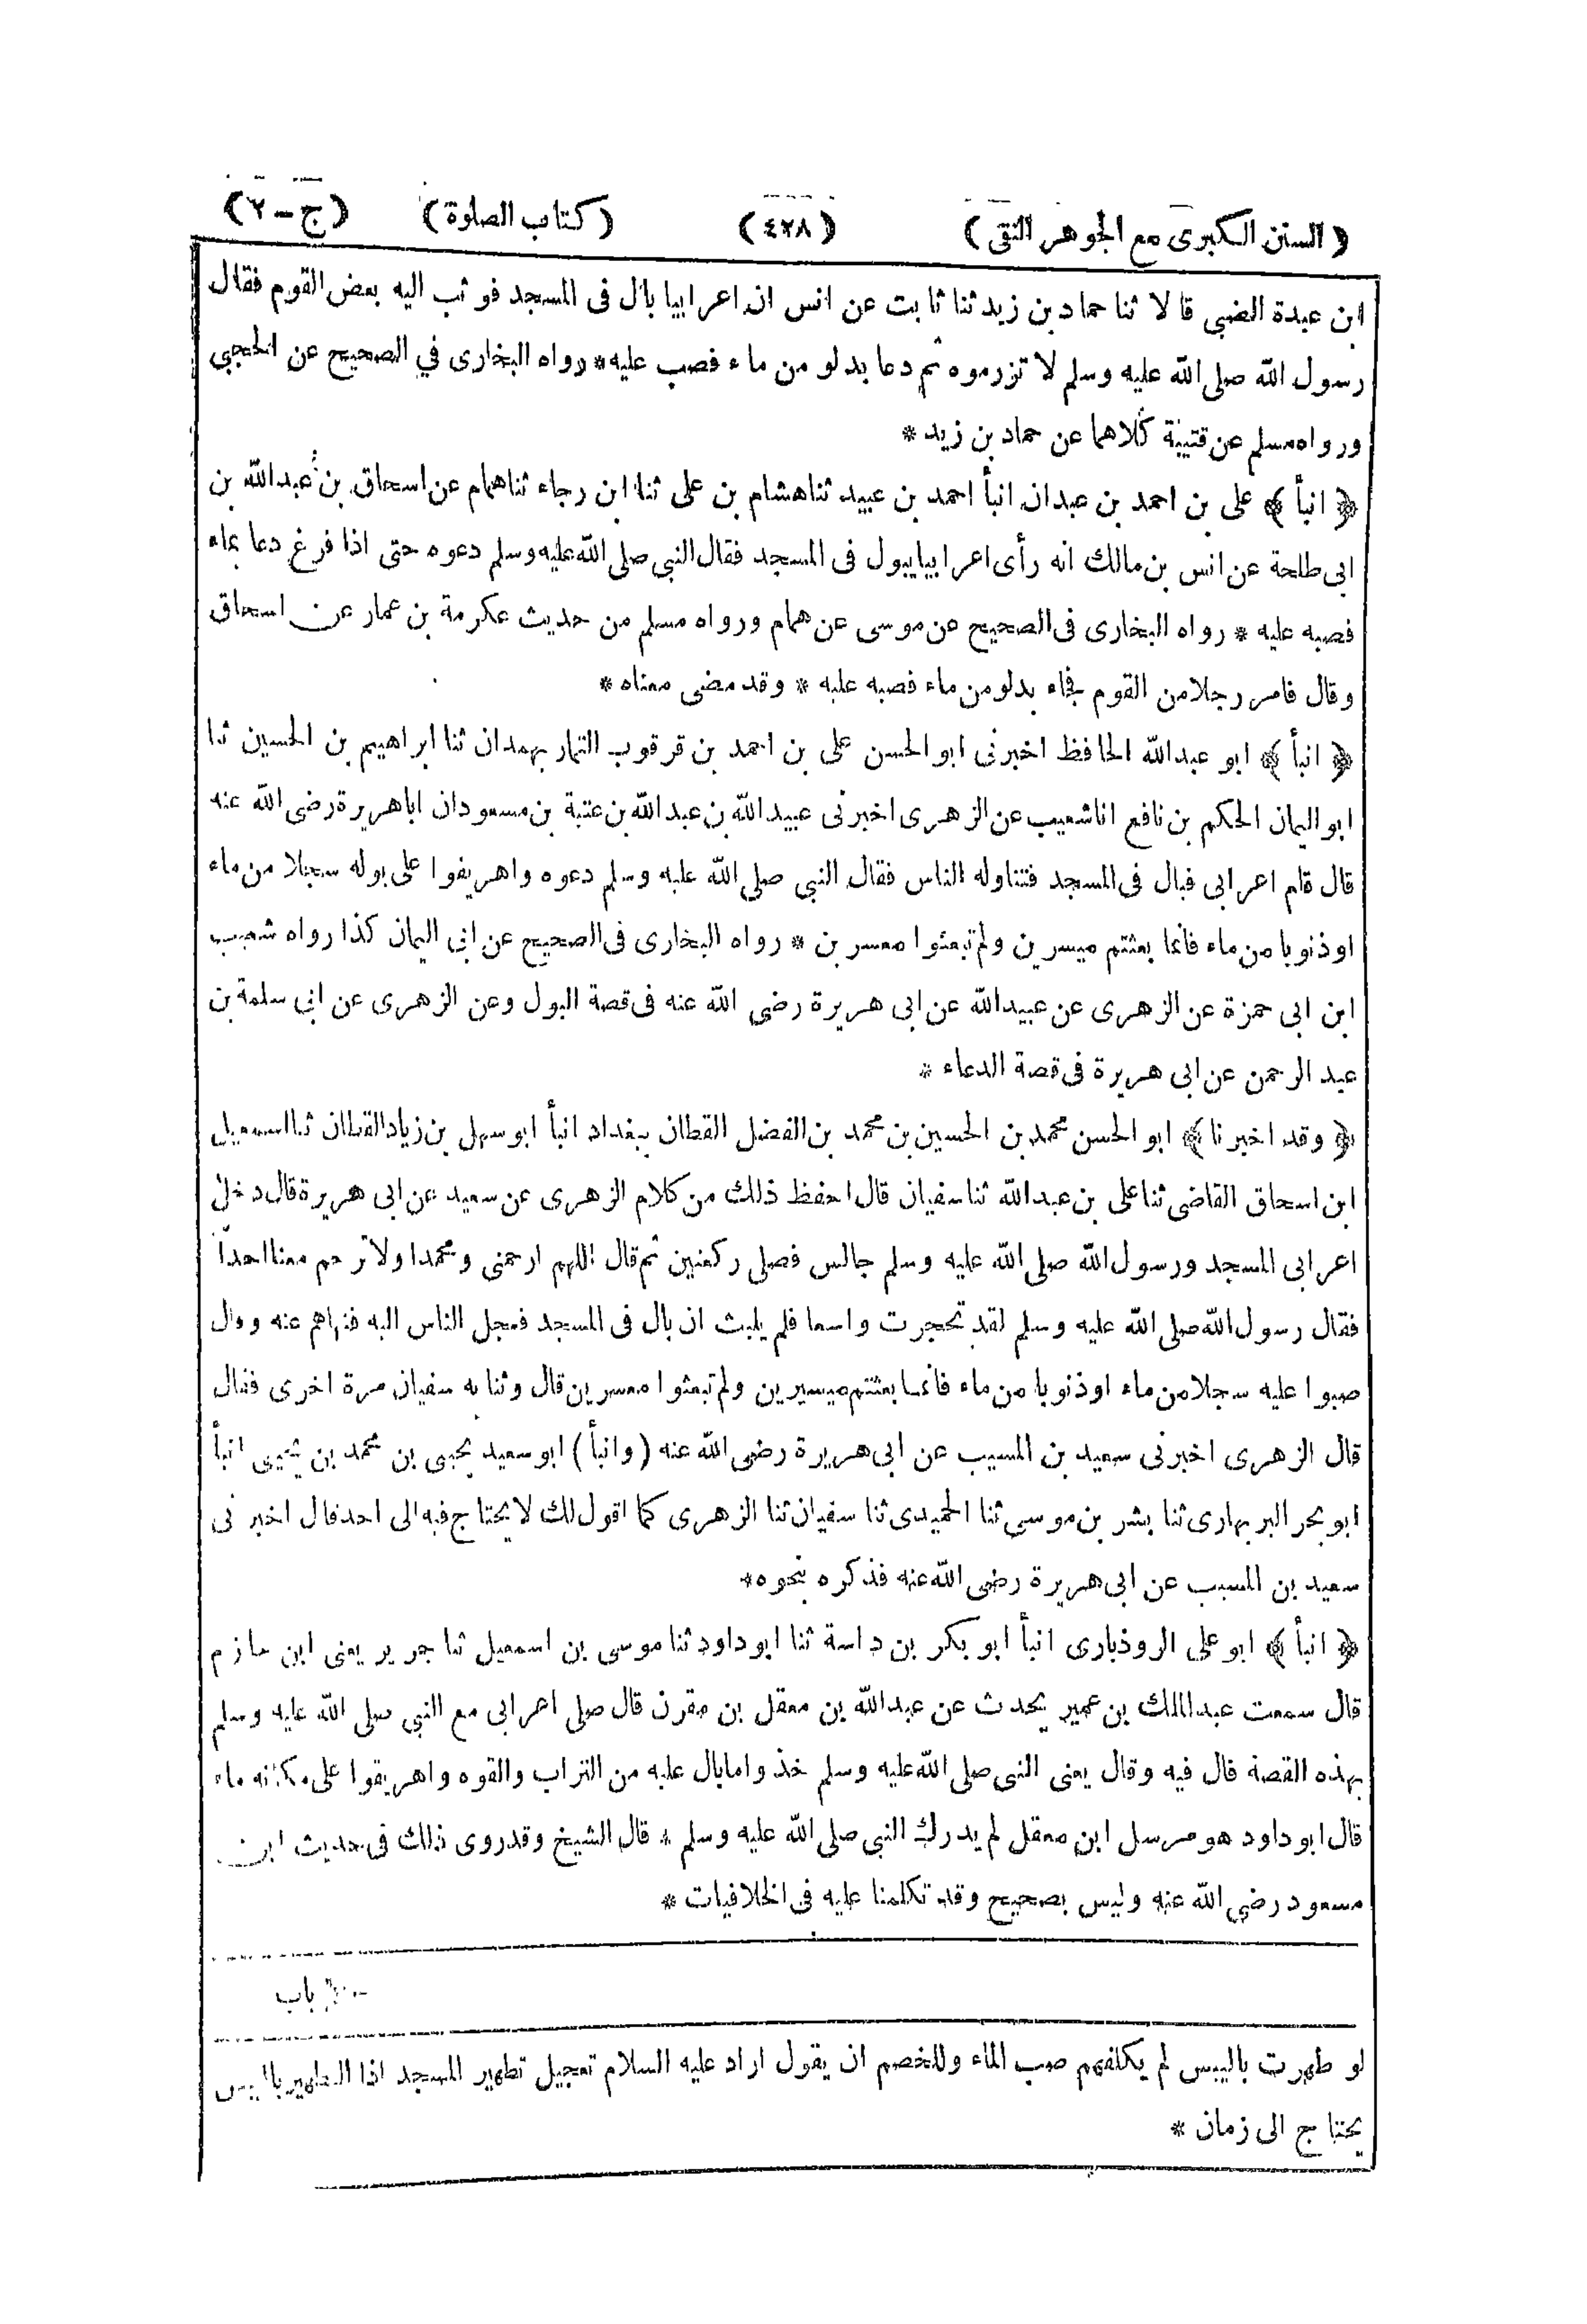 (السنن الكبرى مع الجوهر النقى) (٤٢٨) (كتاب الصلوة) (ج-٢)
ابن عبدة الضبي قالا ثنا حماد بن زيد ثنا ثابت عن انس ان اعرابيا بال فى المسجد فوثب اليه بعض القوم فقال
رسول الله صلى الله عليه وسلم لا تزرموه ثم دعا بدلو من ماء فصب عليه * رواه البخارى في الصحيح عن الحجبي
ورواه مسلم عن قتيبة كلاهما عن حماد بن زيد *
﴿ انبأ ﴾ على بن احمد بن عبدان انبأ احمد بن عبيد ثنا هشام بن على ثنا ابن رجاء ثنا همام عن اسحاق بن عبد الله بن
ابى طلحة عن انس بن مالك انه رأى اعرابيا يبول فى المسجد فقال النبي صلى الله عليه وسلم دعوه حتى اذا فرغ دعا بماء
فصبه عليه * رواه البخارى فى الصحيح عن موسى عن همام ورواه مسلم من حديث عكرمة بن عمار عن اسحاق
وقال فامر رجلا من القوم فجاء بدلو من ماء فصبه عليه * وقد مضى معناه *
﴿ انبأ ﴾ ابو عبد الله الحافظ اخبرنى ابو الحسن على بن احمد بن قرقوب التمار بهمدان ثنا ابراهيم بن الحسين ثنا
ابو اليمان الحكم بن نافع انا شعيب عن الزهرى اخبرنى عبيد الله بن عبد الله بن عتبة بن مسعود ان اباهريرة رضى الله عنه
قال قام اعرابى فبال فى المسجد فتناوله الناس فقال النبي صلى الله عليه وسلم دعوه واهريقوا على بوله سجلا من ماء
اوذنوبا من ماء فانما بعثتم ميسرين ولم تبعثوا معسرين * رواه البخارى فى الصحيح عن ابى اليمان كذا رواه شعيب
ابن ابى حمزة عن الزهرى عن عبيد الله عن ابى هريرة رضى الله عنه فى قصة البول وعن الزهرى عن ابى سلمة بن
عبد الرحمن عن ابى هريرة فى قصة الدعاء *
﴿ وقد اخبرنا ﴾ ابو الحسن محمد بن الحسين بن محمد بن الفضل القطان ببغداد انبأ ابو سهل بن زياد القطان ثنا اسمعيل
ابن اسحاق القاضى ثنا على بن عبد الله ثنا سفيان قال احفظ ذلك من كلام الزهرى عن سعيد عن ابى هريرة قال دخل
اعرابى المسجد ورسول الله صلى الله عليه وسلم جالس فصلى ركعتين ثم قال اللهم ارحمنى ومحمدا ولا ترحم معنا احدا
فقال رسول الله صلى الله عليه وسلم لقد تحجرت واسعا فلم يلبث ان بال فى المسجد فعجل الناس اليه فنهاهم عنه وقال
صبوا عليه سجلا من ماء اوذنوبا من ماء فانما بعثتم ميسيرين ولم تبعثوا معسرين قال وثنا به سفيان مرة اخرى فقال
قال الزهرى اخبرنى سعيد بن المسيب عن ابى هريرة رضى الله عنه (وانبأ) ابو سعيد يحيى بن محمد بن يحيى انبأ
ابو بحر البربهارى ثنا بشر بن موسى ثنا الحميدى ثنا سفيان ثنا الزهرى كما اقول لك لا يحتاج فيه الى احد قال اخبرنى
سعيد بن المسيب عن ابى هريرة رضى الله عنه فذكره بنحوه *
﴿ انبأ ﴾ ابو على الروذبارى انبأ ابو بكر بن داسة ثنا ابو داود ثنا موسى بن اسمعيل ثنا جرير يعنى ابن حازم
قال سمعت عبد الملك بن عمير يحدث عن عبد الله بن معقل بن مقرن قال صلى اعرابى مع النبي صلى الله عليه وسلم
بهذه القصة قال فيه وقال يعنى النبى صلى الله عليه وسلم خذوا ما بال عليه من التراب والقوه واهريقوا على مكانه ماء
قال ابو داود هو مرسل ابن معقل لم يدرك النبى صلى الله عليه وسلم * قال الشيخ وقد روى ذلك فى حديث ابن
مسعود رضى الله عنه وليس بصحيح وقد تكلمنا عليه فى الخلافيات *
باب
لو طهرت باليبس لم يكلفهم صب الماء وللخصم ان يقول اراد عليه السلام تعجيل تطهير المسجد اذا التطهير باليبس
يحتاج الى زمان *